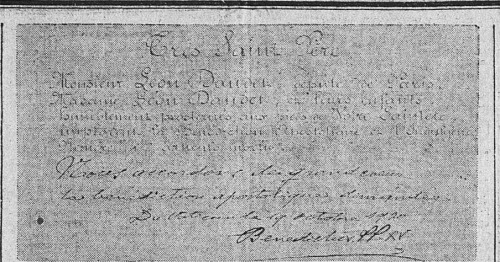 Très Saint Père
Monsieur Léon Daudet, député de Paris,
Madame Léon Daudet, et leurs enfants,
humblement prosternés aux pieds de Votre Sainteté,
implorent la Bénédiction Apostolique et l'Indulgence
Plénière in articulo mortis.
Nous accordons de grand coeur
la bénédiction apostolique demandée
Du Vatican le 19 octobre 1920
Benedictus PP XV